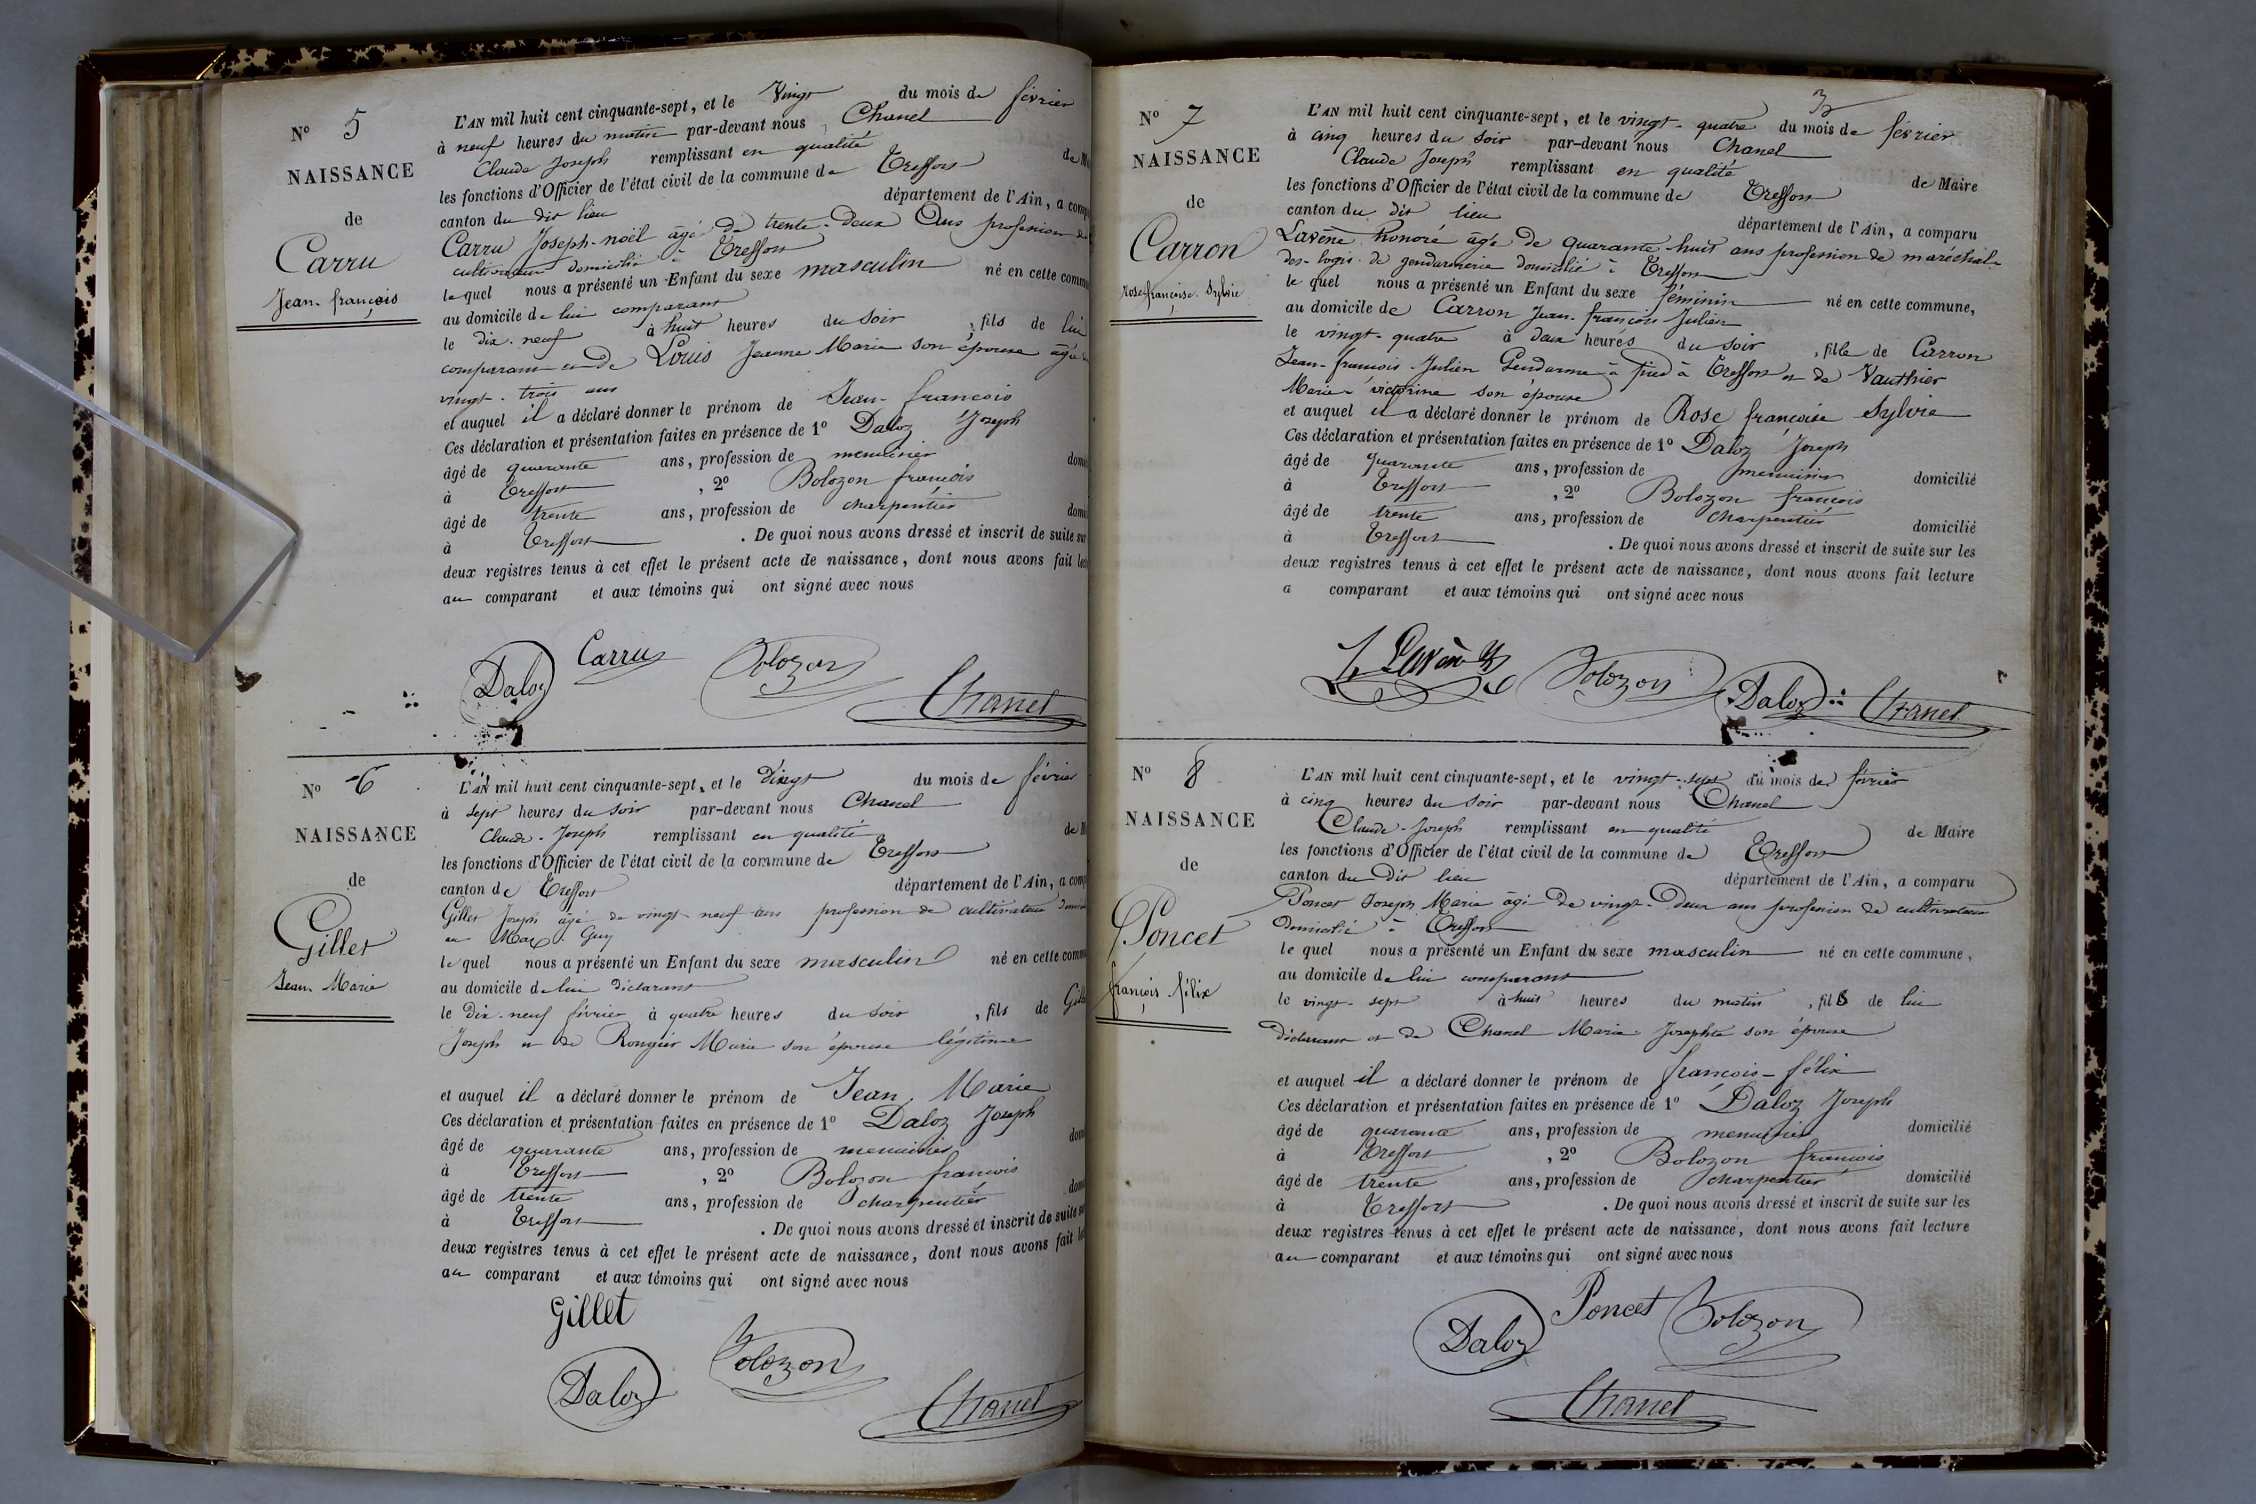 N° 5
NAISSANCE
de
Carru
Jean-françois
L'AN mil huit cent cinquante-sept, et le Vingt du mois de février
à neuf heures du matin par-devant nous Chanel
Claude Joseph remplissant en qualité de M
les fonctions d'Officier de l'état civil de la commune de Treffort
canton du dit lieu département de l'Ain, a comp
Carru Joseph-noël âgé de trente-deux Ans profession de
cultivateur domicilié à Treffort
le quel nous a présenté un Enfant du sexe masculin né en cette commu
au domicile de lui comparant
le dix-neuf à huit heures du soir, fils de lui
comparant et de Louis Jeanne Marie son épouse âgée
vingt-trois ans
et auquel il a déclaré donner le prénom de Jean-francois
Ces déclaration et présentation faites en présence de 1° Daloz Joseph
âgé de quarante ans, profession de menuisier domi
à Treffort, 2° Bolozon francois
âgé de trente ans, profession de charpentier domi
à Treffort. De quoi nous avons dressé et inscrit de suite sur
deux registres tenus à cet effet le présent acte de naissance, dont nous avons fait lect
au comparant et aux témoins qui ont signé avec nous
Daloz Carru Bolozon Chanel
N° 6
NAISSANCE
de
Gillet
Jean Marie
L'AN mil huit cent cinquante-sept, et le Vingt du mois de février
à sept heures du soir par-devant nous Chanel
Claude-Joseph remplissant en qualité de M
les fonctions d'Officier de l'état civil de la commune de Treffort
canton de Treffort département de l'Ain, a comp
Gillet Joseph âgé de vingt-neuf ans profession de cultivateur
en Guy
le quel nous a présenté un Enfant du sexe masculin né en cette commu
au domicile de lui déclarant
le dix-neuf février à quatre heures du soir, fils de Gillet
Joseph et de Rongier Marie son épouse légitime
et auquel il a déclaré donner le prénom de Jean Marie
Ces déclaration et présentation faites en présence de 1° Daloz Joseph
âgé de quarante ans, profession de menuisier domi
à Treffort, 2° Bolozon francois
âgé de trente ans, profession de charpentier domi
à Treffort. De quoi nous avons dressé et inscrit de suite su
deux registres tenus à cet effet le présent acte de naissance, dont nous avons fait le
au comparant et aux témoins qui ont signé avec nous
Gillet
Daloz Bolozon Chanel
3
N° 7
NAISSANCE
de
Carron
Rose-françoise-Sylvie
L'AN mil huit cent cinquante-sept, et le vingt-quatre du mois de février
à cinq heures du soir par-devant nous Chanel
Claude Joseph remplissant en qualité de Maire
les fonctions d'Officier de l'état civil de la commune de Treffort
canton du dit lieu département de l'Ain, a comparu
Lavène honoré âgé de quarante-huit ans profession de maréchal-
des-logis de gendarmerie domicilié à Treffort
le quel nous a présenté un Enfant du sexe féminin né en cette commune,
au domicile de Carron Jean-francois Julien
le vingt-quatre à deux heures du soir, fille de Carron
Jean-francois Julien Gendarme à pied à Treffort et de Vauthier
Marie-victorine son épouse
et auquel il a déclaré donner le prénom de Rose françoise Sylvie
Ces déclaration et présentation faites en présence de 1° Daloz Joseph
âgé de quarante ans, profession de menuisier domicilié
à Treffort, 2° Bolozon francois
âgé de trente ans, profession de charpentier domicilié
à Treffort. De quoi nous avons dressé et inscrit de suite sur les
deux registres tenus à cet effet le présent acte de naissance, dont nous avons fait lecture
a comparant et aux témoins qui ont signé avec nous
Lavène Bolozon Daloz Chanel
N° 8
NAISSANCE
de
Poncet
françois-félix
L'AN mil huit cent cinquante-sept, et le vingt-sept du mois de février
à cinq heures du soir par-devant nous Chanel
Claude-Joseph remplissant en qualité de Maire
les fonctions d'Officier de l'état civil de la commune de Treffort
canton du dit lieu département de l'Ain, a comparu
Poncet Joseph Marie âgé de vingt-deux ans profession de cultivateur
domicilié à Treffort
le quel nous a présenté un Enfant du sexe masculin né en cette commune,
au domicile de lui comparant
le vingt-sept à huit heures du matin, fils de lui
déclarant et de Chanel Marie Josephte son épouse
et auquel il a déclaré donner le prénom de francois-félix
Ces déclaration et présentation faites en présence de 1° Daloz Joseph
âgé de quarante ans, profession de menuisier domicilié
à Treffort, 2° Bolozon francois
âgé de trente ans, profession de charpentier domicilié
à Treffort. De quoi nous avons dressé et inscrit de suite sur les
deux registres tenus à cet effet le présent acte de naissance, dont nous avons fait lecture
au comparant et aux témoins qui ont signé avec nous
Daloz Poncet Bolozon
Chanel